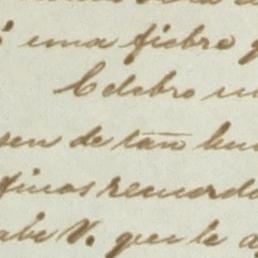 una fiebre
Celebro
sen de tan
finos recuerdo
abe V. que le a